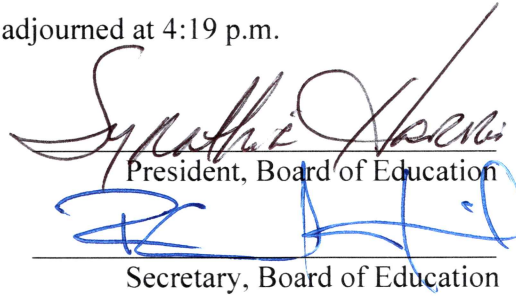 adjourned at 4:19 p.m.
President, Board of Education
Secretary, Board of Education